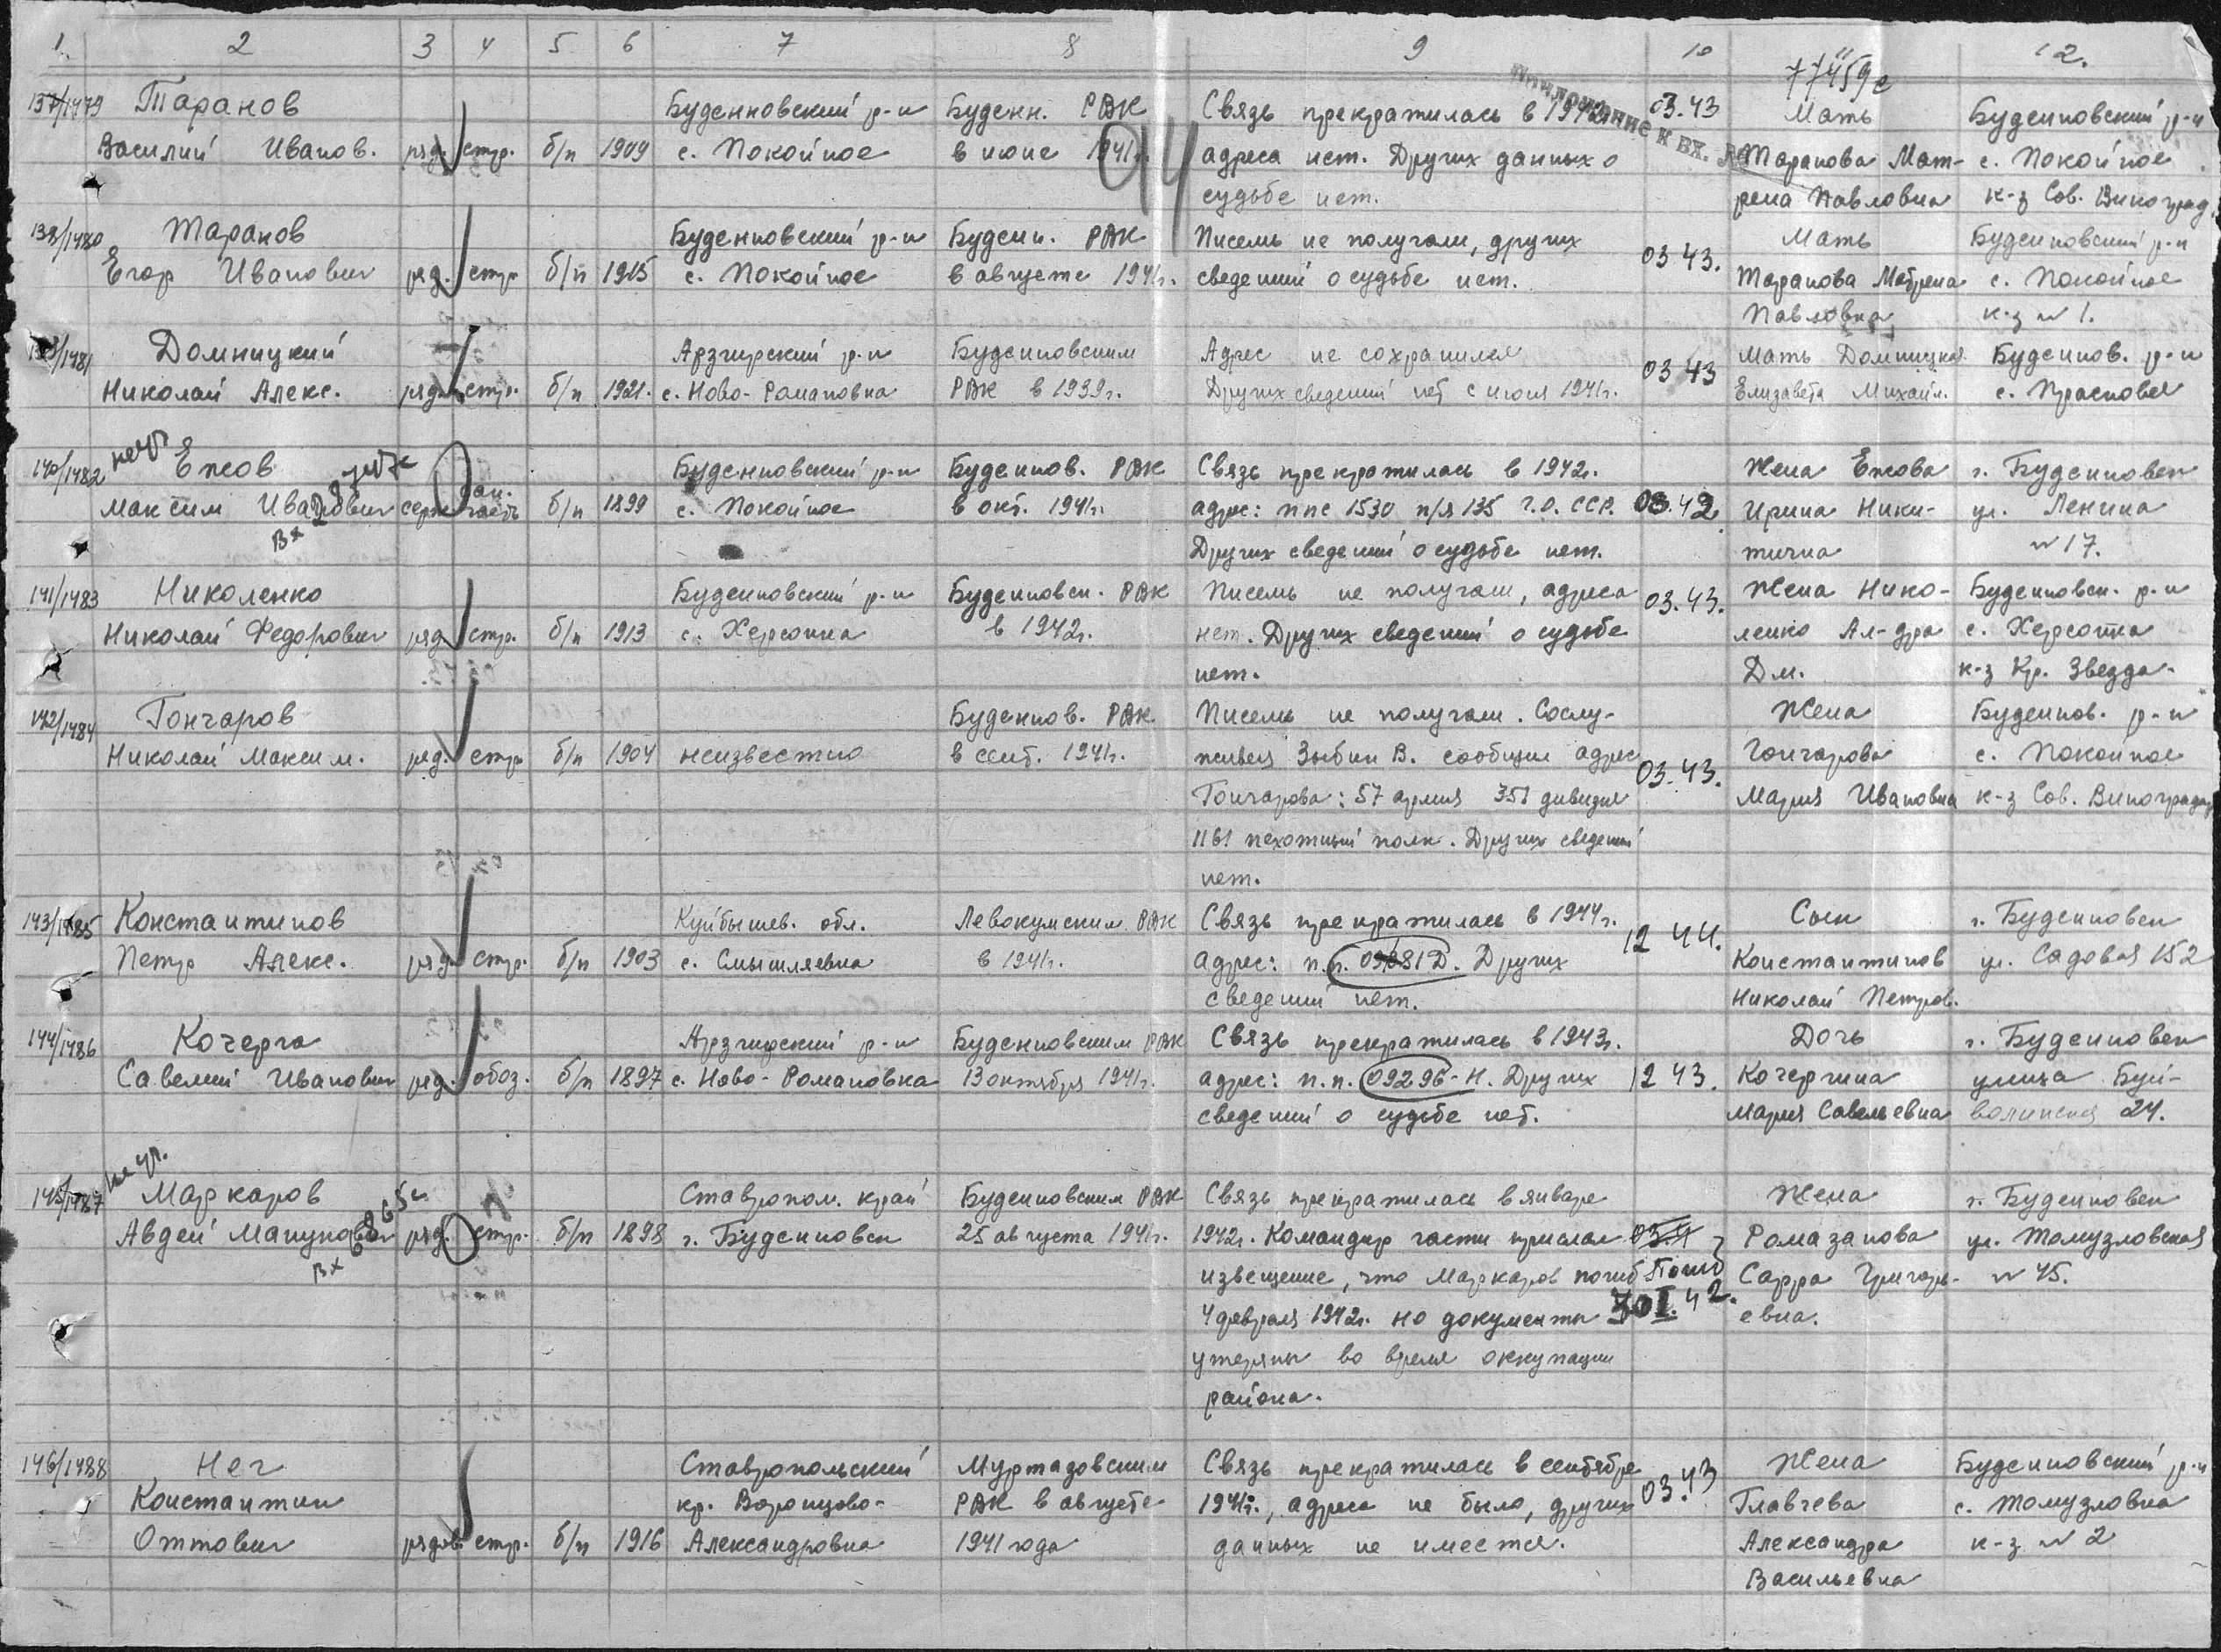 1. 2 3 4 5 6 7 8 9 10 11 12.
77459с
Приложение к вх. №
94
137/1479 Таранов Буденновский р-н Буденн. РВК Связь прекратилась в 1942г. 03.43 Мать Буденновский р-н
Василий Иванов. ряд. стр. б/п 1909 с. Покойное в июне 1941г. адреса нет. Других данных о Таранова Мат- с. Покойное
судьбе нет. рена Павловна к-з Сов. Виноград.
138/1480 Таранов Буденновский р-н Буденн. РВК Писем не получали, других 03 43. Мать Буденновский р-н
Егор Иванович ряд. стр. б/п 1915 с. Покойное в августе 1941г. сведений о судьбе нет. Таранова Матрена с. Покойное
Павловна к-з № 1.
139/1481 Домницкий Арзгирский р-н Буденновским Адрес не сохранился 03 43 Мать Домницкая Буденнов. р-н
Николай Алекс. ряд. стр. б/п 1921. с. Ново-Романовка РВК в 1939г. Других сведений нет с июня 1941г. Елизавета Михайл. с. Прасковея
140/1482 Ежов Буденновский р-н Буденнов. РВК Связь прекратилась в 1942г. Жена Ежова г. Буденновск
Максим Иванович серж. сан. часть б/п 1899 с. Покойное в окт. 1941г. адрес: ппс 1530 п/я 135 г.о. ССР. 03.42 Ирина Ники- ул. Ленина
Вх Других сведений о судьбе нет. тична № 17.
141/1483 Николенко Буденновский р-н Буденновск. РВК Писем не получали, адреса 03.43. Жена Нико- Буденновск. р-н
Николай Федорович ряд. стр. б/п 1913 с. Херсонка в 1942г. нет. Других сведений о судьбе ленко Ал-дра с. Херсонка
нет. Дм. к-з Кр. Звезда.
142/1484 Гончаров Буденнов. РВК Писем не получали. Сослу- Жена Буденнов. р-н
Николай Максим. ряд. стр. б/п 1904 неизвестно в сент. 1941г. живец Зыбин В. сообщил адрес 03.43. Гончарова с. Покойное
Гончарова: 57 армия 351 дивизия Мария Ивановна к-з Сов. Виноградар
1161 пехотный полк. Других сведений
нет.
143/1485 Константинов Куйбышев. обл. Левокумским РВК Связь прекратилась в 1944г. 12 44. Сын г. Буденновск
Петр Алекс. ряд. стр. б/п 1903 с. Смышляевка в 1941г. адрес: п.п. Других Константинов ул. Садовая 152
сведений нет. Николай Петров.
144/1486 Кочерга Арзгирский р-н Буденновским РВК Связь прекратилась в 1943г. Дочь г. Буденновск
Савелий Иванович ряд. обоз. б/п 1897 с. Ново-Романовка 13 октября 1941г. адрес: п.п. 09296-Н. Других 12 43. Кочергина улица Буй-
сведений о судьбе нет. Мария Савельевна волинская 24.
145/1487 Маркаров Ставропол. край Буденновским РВК Связь прекратилась в январе Жена г. Буденновск
Авдей ряд. стр. б/п 1898 г. Буденновск 25 августа 1941г. 1942г. Командир части прислал Рамазанова ул. Томузловская
Вх извещение, что Маркаров погиб Погиб Сарра Григорь- № 45.
4 февраля 1942г. но документы I.42. евна.
утеряны во время оккупации
района.
146/1488 Нег Ставропольский Муртазовским Связь прекратилась в сентябре 03.43 Жена Буденновский р-н
Константин кр. Воронцово- РВК в августе 1941г., адреса не было, других Главчева с. Томузловка
Оттович рядов. стр. б/п 1916 Александровка 1941 года данных не имеется. Александра к-з № 2
Васильевна